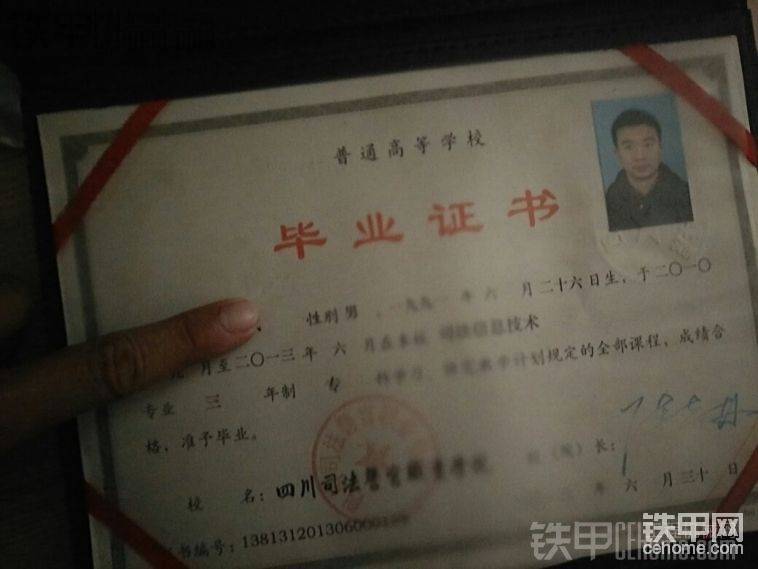 普通高等学校
毕业证书
性别 男 , 一九九一 年 六 月 二十六 日生, 于二〇一〇
年 九 月至二〇一三 年 六 月在本校 司法信息技术
专业 三 年制 专 科学习, 计划规定的全部课程, 成绩合
格, 准予毕业。
校 名: 四川司法警官职业学院 校(院)长:
年 六 月 三十 日
证书编号: 138131201306000
铁甲网
cehome.com
铁甲CEHOME